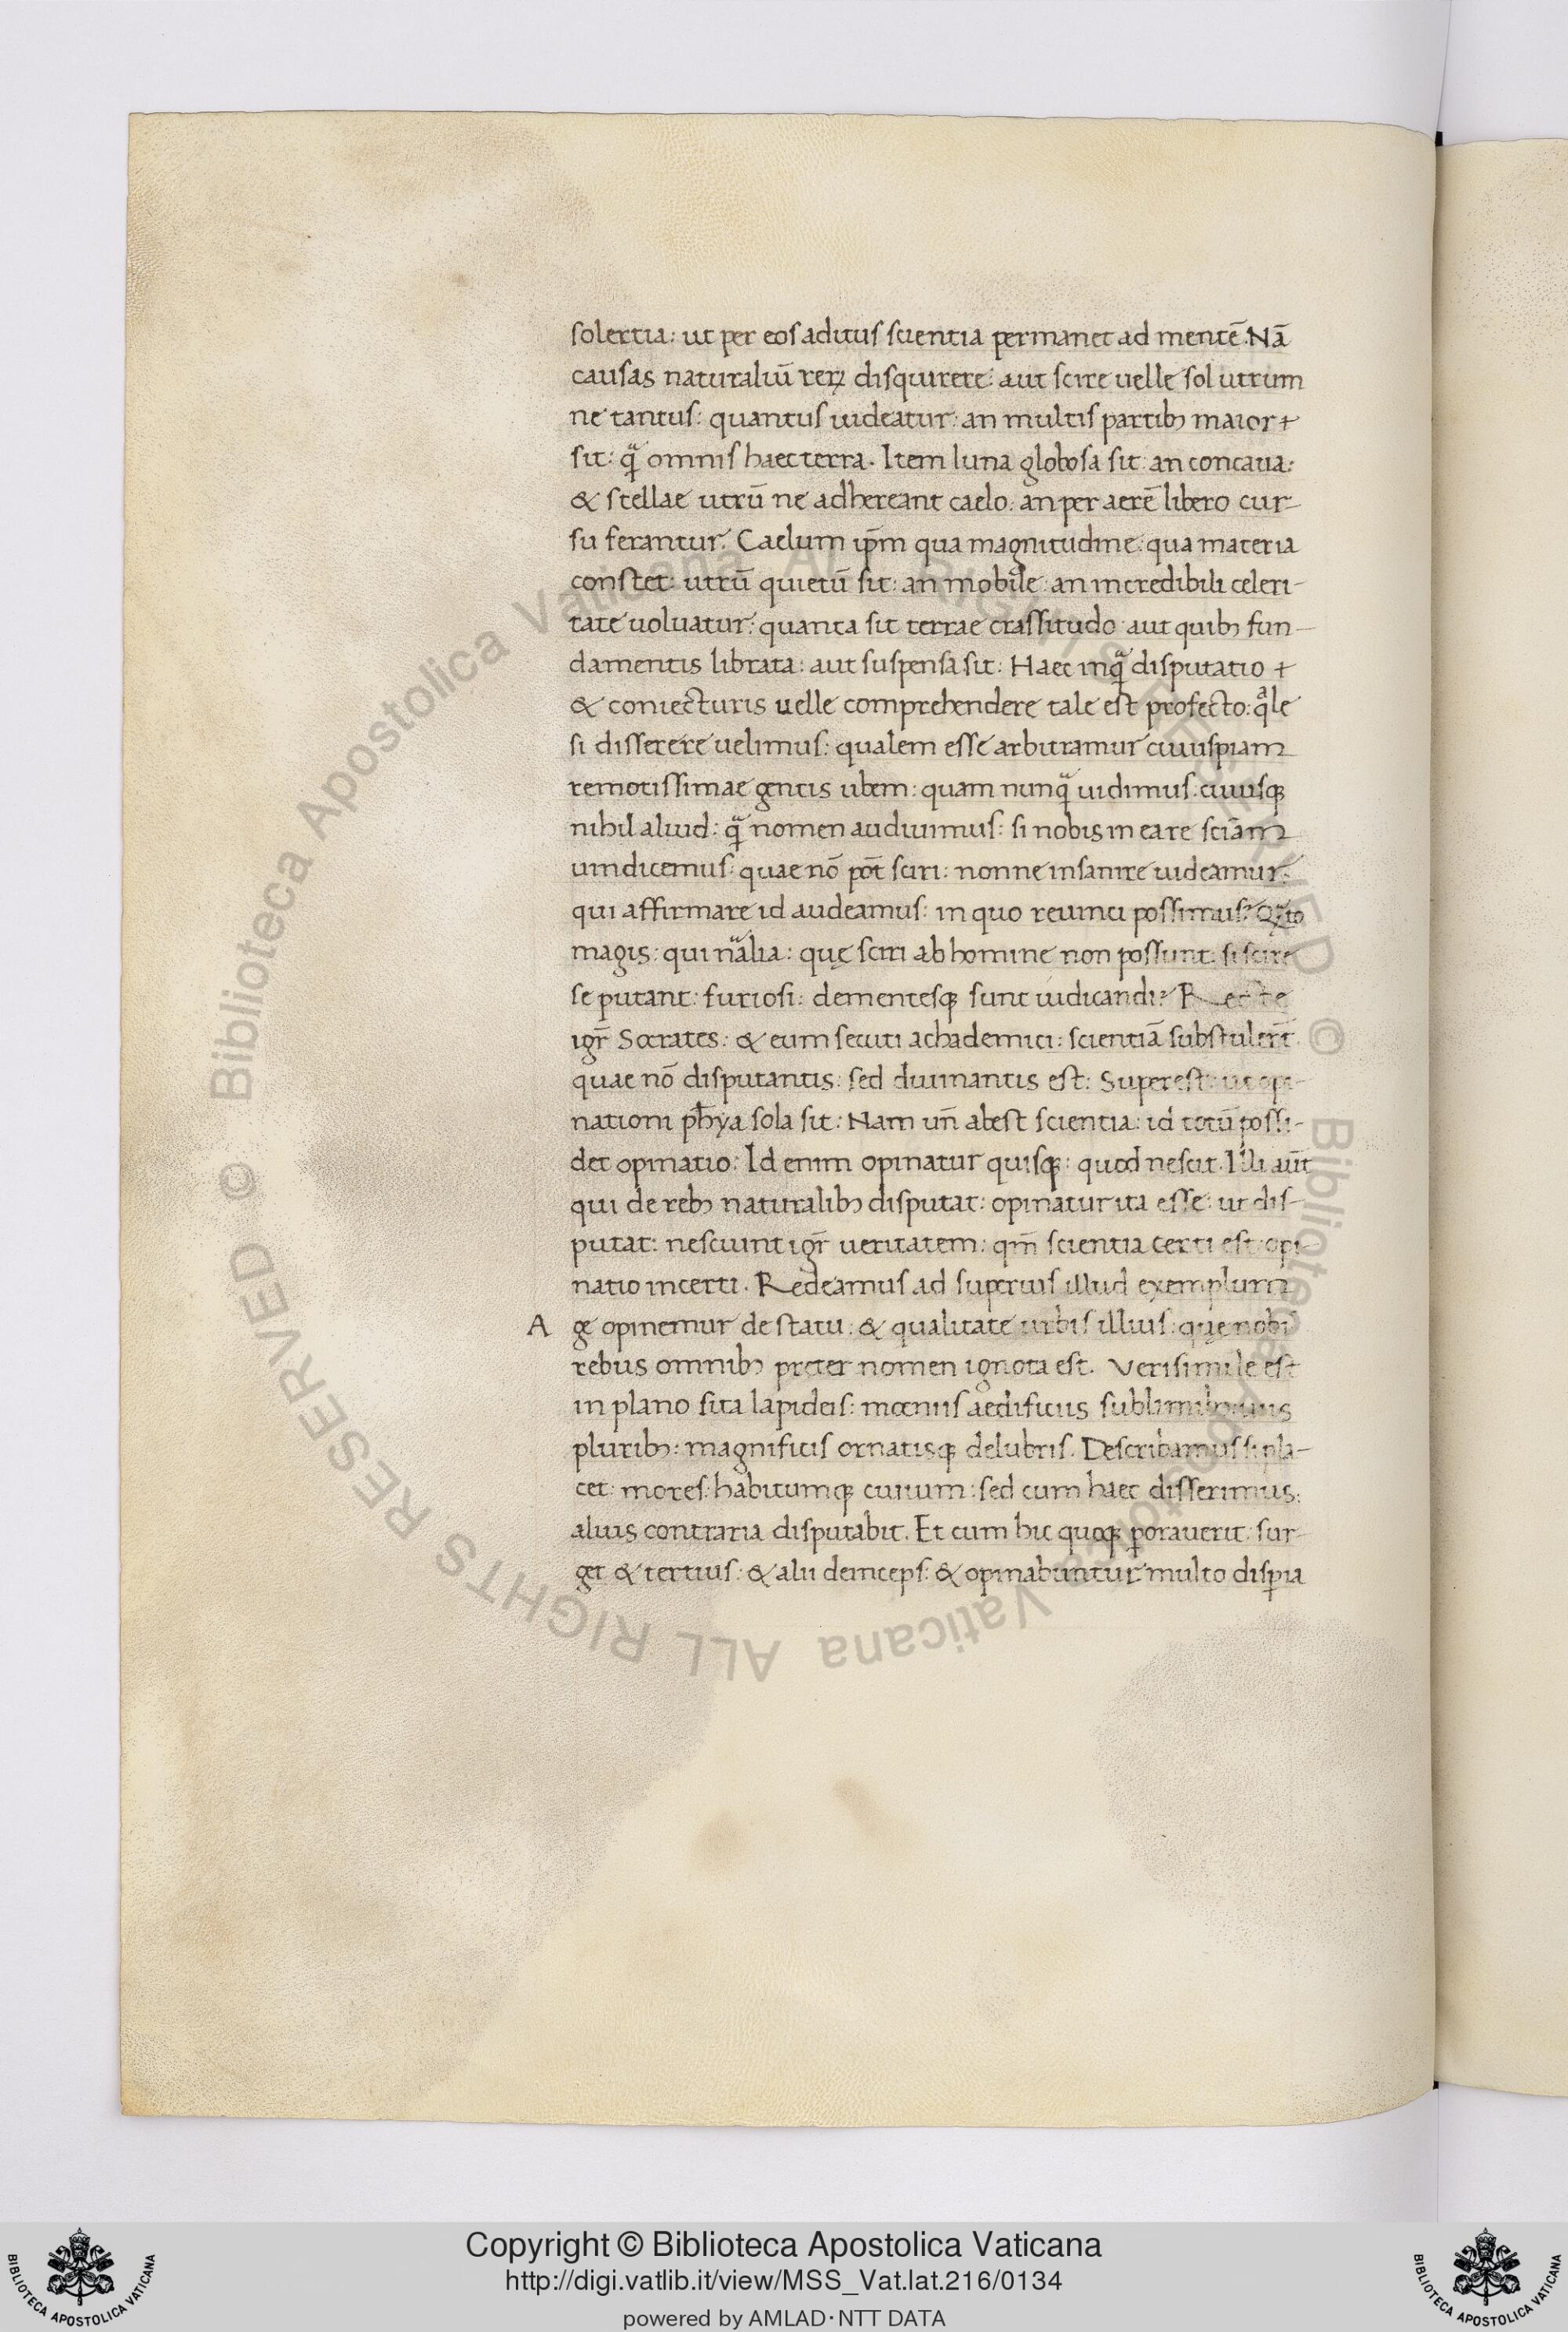 solertia: ut per eos aditus scientia permanet ad mentē. Nā
causas naturaliū rerꝝ disquirere: aut scire uelle sol utrum
ne tantus: quantus uideatur: an multis partibꝫ maior +
sit: qͣ omnis haec terra. Item luna globosa sit: an concaua:
& stellae utrū ne adhereant caelo: an per aerē libero cur-
su ferantur. Caelum ip̄m qua magnitudine: qua materia
constet: utrū quietū sit: an mobile: an incredibili celeri-
tate uoluatur: quanta sit terrae crassitudo: aut quibꝫ fun-
damentis librata: aut suspensa sit: Haec inqͣ disputatio +
& coniecturis uelle comprehendere tale est profecto: qͣle
si disserere uelimus: qualem esse arbitramur cuiuspiam
remotissimae gentis ubem: quam nunqͣ uidimus: cuiusqꝫ
nihil aliud: qͣ nomen audiuimus: si nobis in ea re sciām
uindicemus: quae nō pōt sciri: nonne insanire uideamur:
qui affirmare id audeamus: in quo reuinci possimus? Qͣto
magis: qui nālia: quę sciri ab homine non possunt: si scire
se putant: furiosi: dementesqꝫ sunt iudicandi? Recte
igr̄ Socrates: & eum secuti achademici: scientiā substuler̄t
quae nō disputantis: sed diuinantis est: Superest: ut opi-
nationi ph̄ya sola sit: Nam un̄ abest scientia: id totū possi-
det opinatio: Id enim opinatur quisqꝫ: quod nescit. Illi aūt
qui de rebꝫ naturalibꝫ disputat: opinatur ita esse: ut dis-
putat: nesciunt igr̄ ueritatem: qm̄ scientia certi est: opi-
natio incerti. Redeamus ad superius illud exemplum
A ge opinemur de statu: & qualitate urbis illius: quę nobis
rebus omnibꝫ preter nomen ignota est. Verisimile est
in plano sita lapideis: moeniis aedificiis sublimibꝫ: uiis
pluribꝫ: magnificis ornatisqꝫ delubris. Describamus si pla-
cet: mores: habitumqꝫ ciuium: sed cum haec disserimus:
alius contraria disputabit. Et cum hic quoqꝫ ꝑorauerit: sur-
get & tertius: & alii deinceps: & opinabuntur multo disꝑia
Copyright © Biblioteca Apostolica Vaticana
http://digi.vatlib.it/view/MSS_Vat.lat.216/0134
powered by AMLAD·NTT DATA
BIBLIOTECA APOSTOLICA VATICANA
BIBLIOTECA APOSTOLICA VATICANA
© Biblioteca Apostolica Vaticana ALL RIGHTS RESERVED © Biblioteca Apostolica Vaticana ALL RIGHTS RESERVED